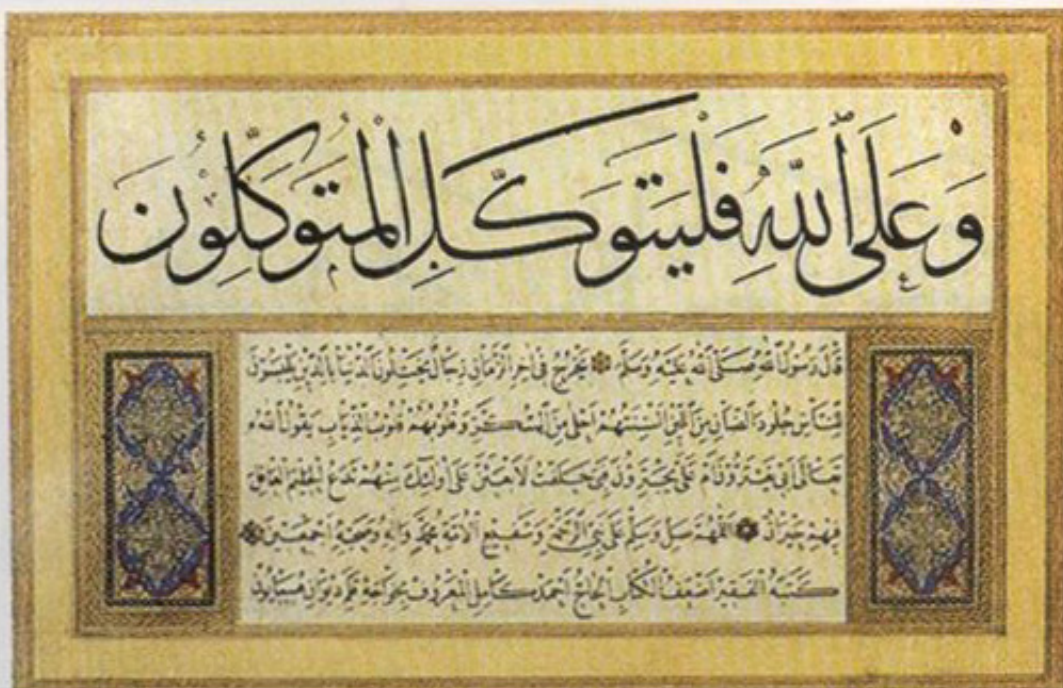 وَعَلَى ٱللَّهِ فَلْيَتَوَكَّلِ الْمُتَوَكِّلُونَ
قال رسول الله صلى الله عليه وسلم يخرج في اخر الزمان رجال يختلون الدنيا بالدين يلبسون
للناس جلود الضأن من اللين السنتهم احلى من السكر وقلوبهم قلوب الذياب يقول الله
تعالى ابي يغترون ام علي يجترؤن فبي حلفت لأبعثن على اولئك منهم تدع الحليم
فيهم حيران اللهم صل وسلم على نبي الرحمة وشفيع الامة محمد واله وصحبه اجمعين
كتبه الفقير اضعف الكتاب الحاج احمد كامل المعروف بخواجه قلم ديوان همايون